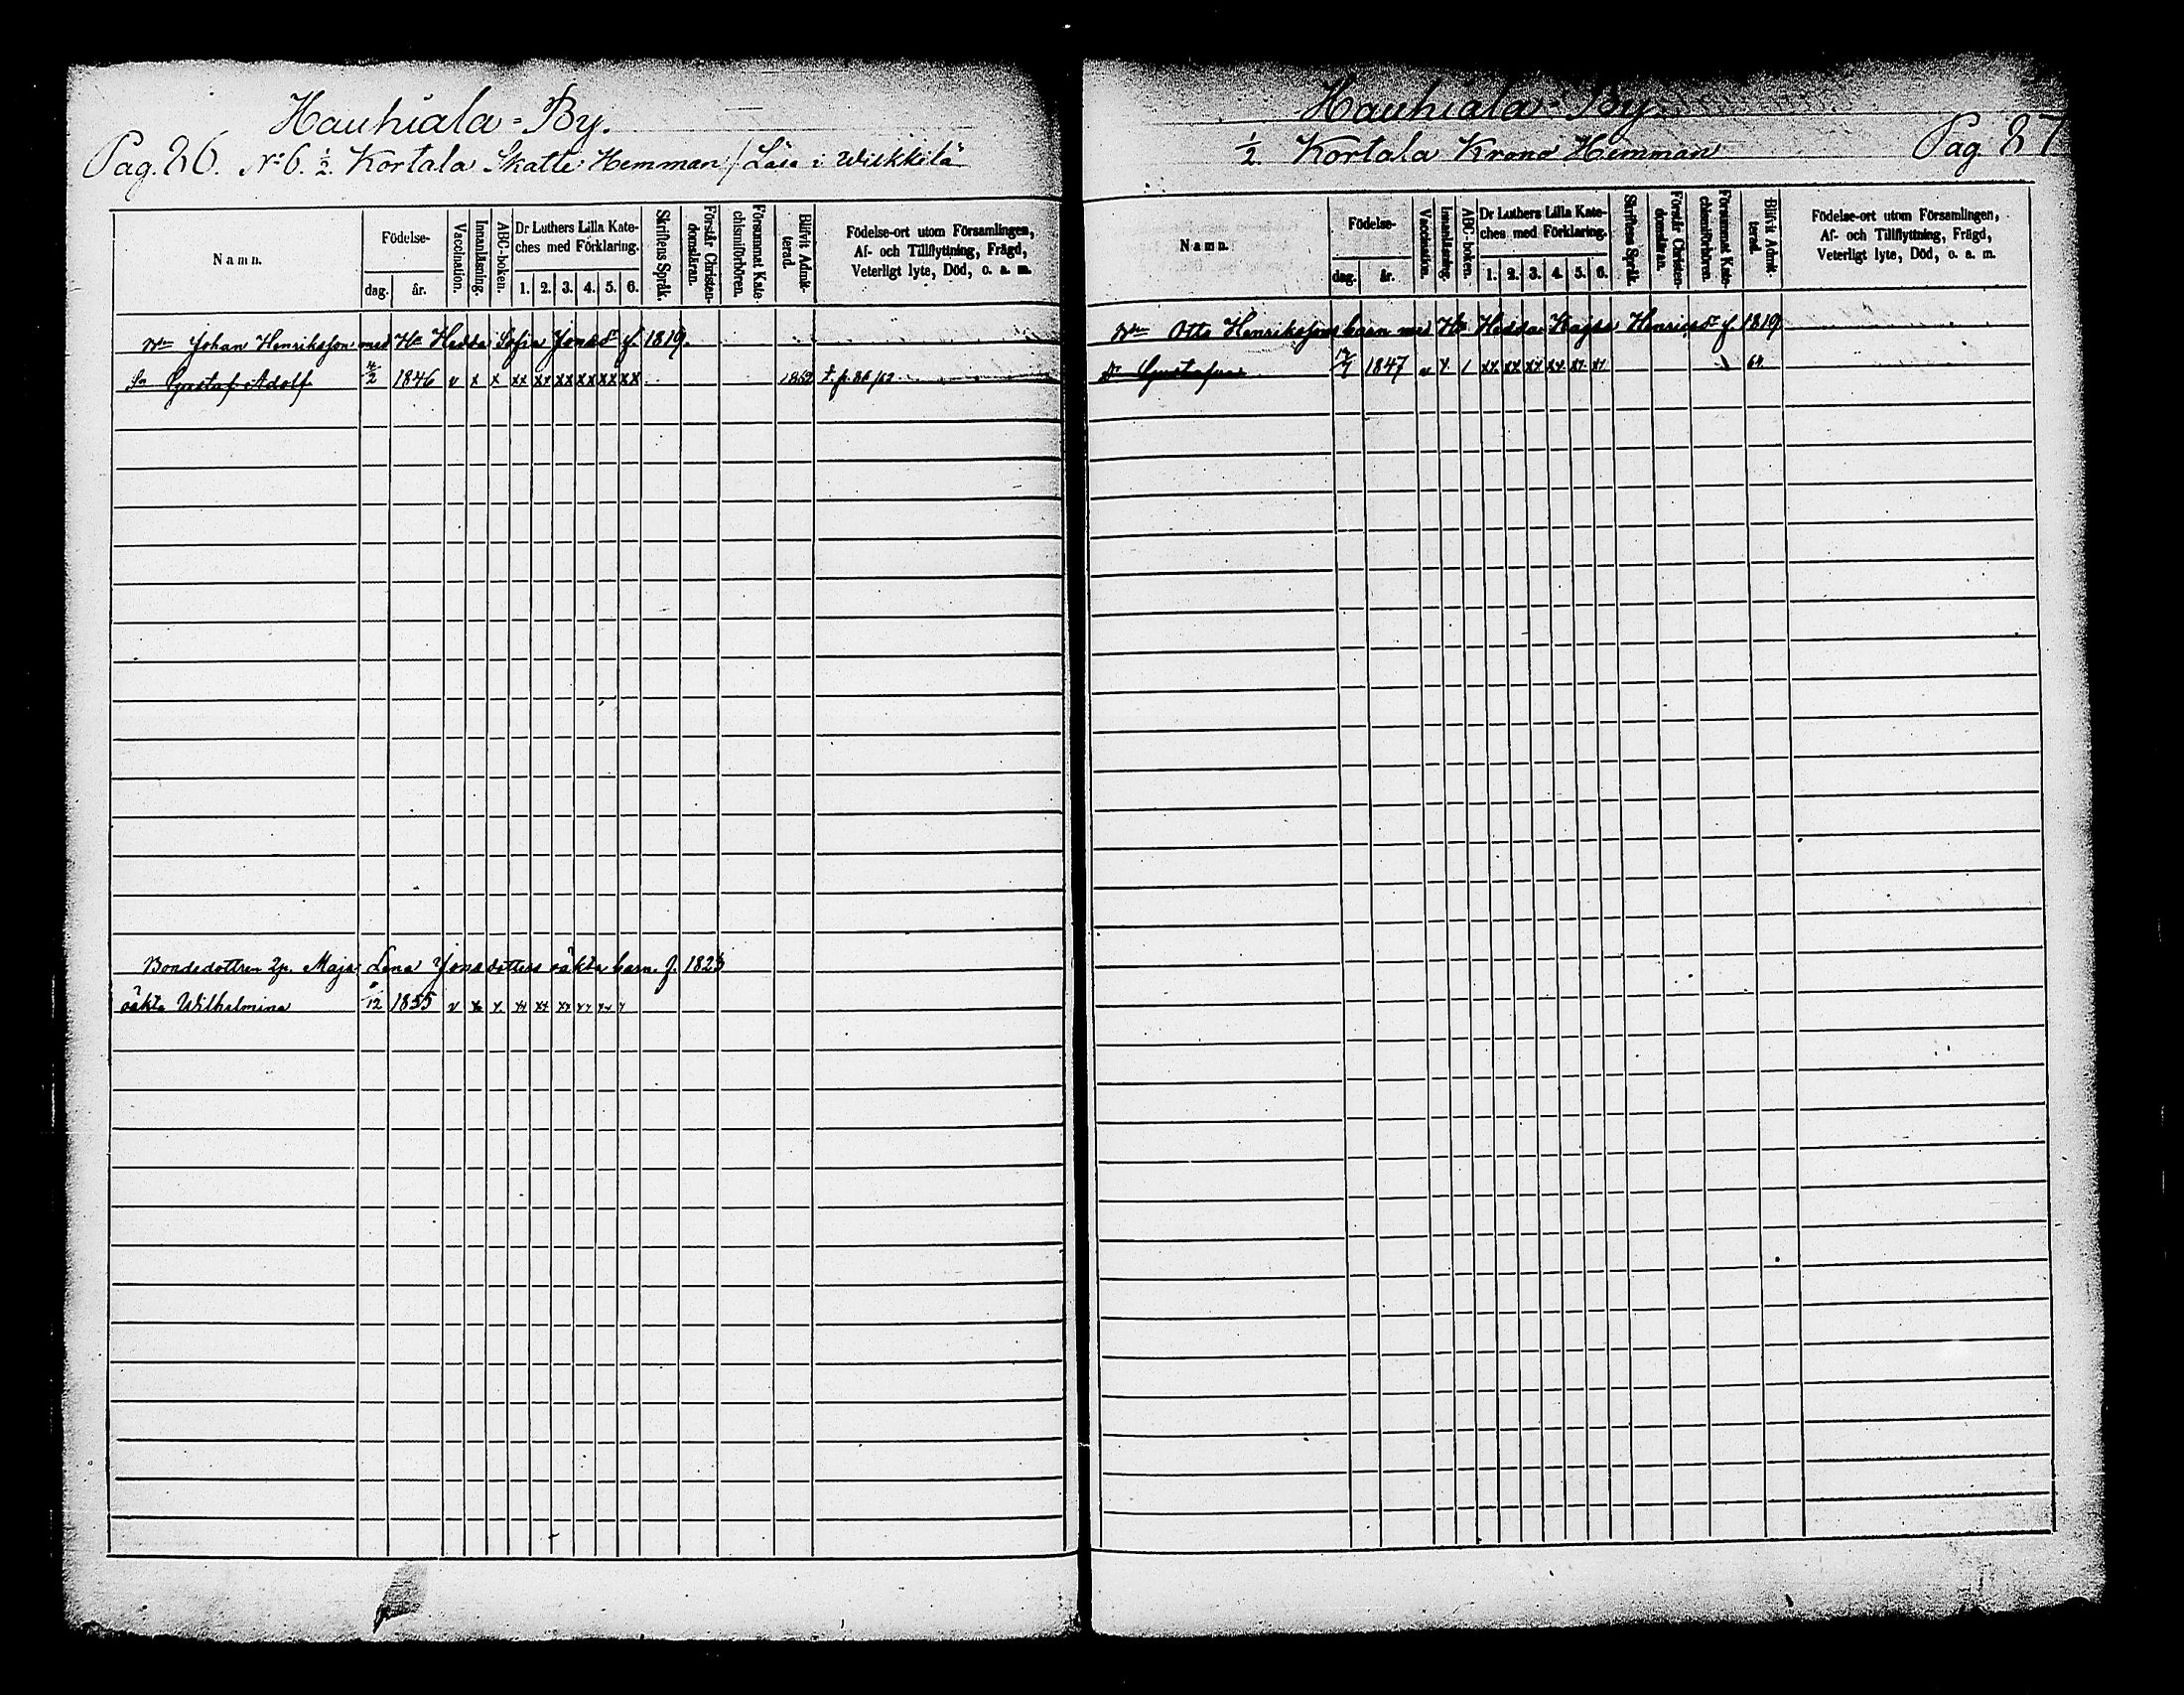 Hauhiala=By.
Pag. 86. No 6. ½. Kortala Skatte Hemman / Läsa i Wilkkilä
Namn.
Födelse-
dag. år.
Vaccination.
Innanläsning.
ABC-boken.
Dr Luthers Lilla Kate-
ches med Förklaring.
1. 2. 3. 4. 5. 6.
Skriftens Språk.
Förstår Christen-
domsläran.
Försummat Kate-
chismiförhören.
Blifvit Admit-
terad.
Födelse-ort utom Församlingen,
Af- och Tillflyttning, Frägd,
Veterligt lyte, Död, o. a. m.
Bn Johan Henriksson med Hu Hedda Sofia Jonsdr f. 1819.
Sn Gustaf Adolf 4/2 1846 v x x xx xx xx xx xx xx 1862 f. p. 86/62
Bondedottren Maja Lena Jonsdotters oäkta barn. f. 1823
oäkta Wilhelmina /12 1855 v x x xx xx xx xx xx x
Hauhiala=By.
½. Kortala Krono Hemman Pag. 87
Namn.
Födelse-
dag. år.
Vaccination.
Innanläsning.
ABC-boken.
Dr Luthers Lilla Kate-
ches med Förklaring.
1. 2. 3. 4. 5. 6.
Skriftens Språk.
Förstår Christen-
domsläran.
Försummat Kate-
chismiförhören.
Blifvit Admit-
terad.
Födelse-ort utom Församlingen,
Af- och Tillflyttning, Frägd,
Veterligt lyte, Död, o. a. m.
Bn Otto Henrikssons barn med Hu Hedda Kajsa Henricsdr f. 1819
Dr Gustafva 1847 v x / xx xx xx xx xx xx 64.